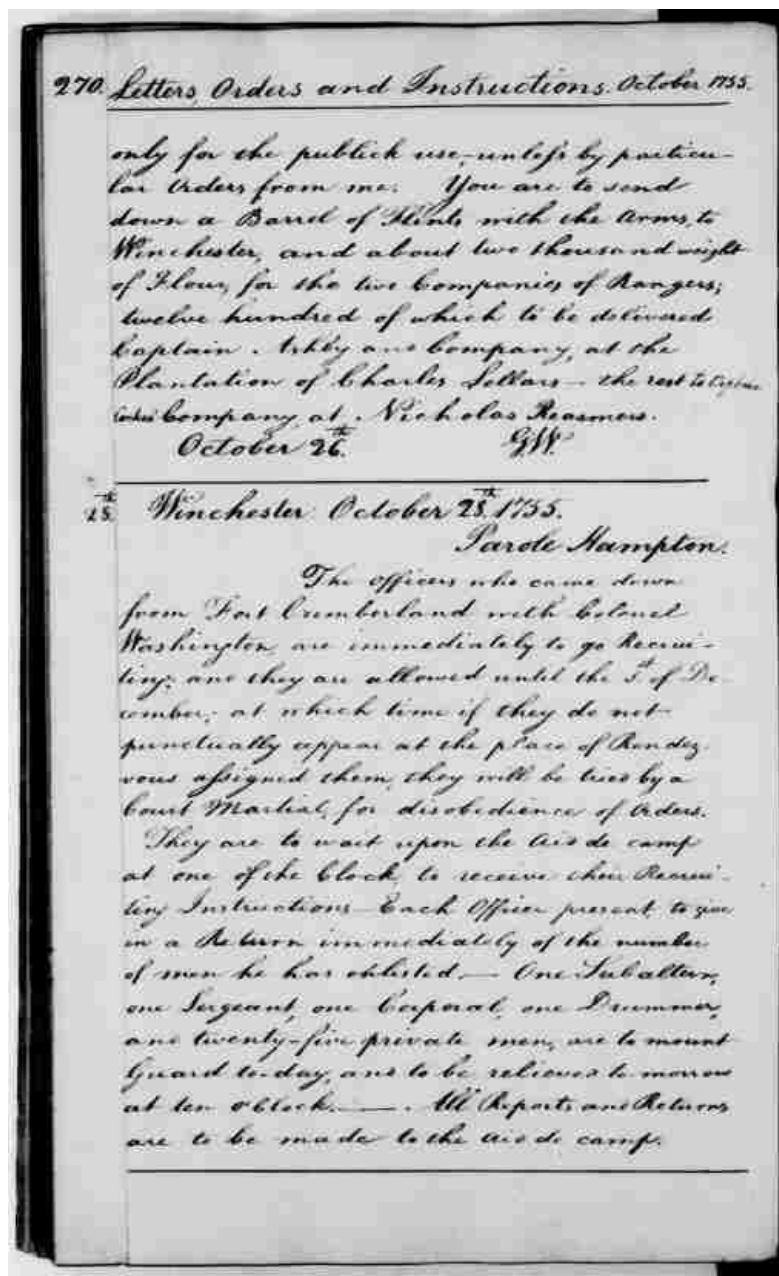 270. Letters, Orders and Instructions. October 1755.
only for the publick use, unless by particu-
lar Orders from me. You are to send
down a Barrel of Flints with the Arms, to
Winchester, and about two thousand weight
of Flour, for the two Companies of Rangers;
twelve hundred of which to be delivered
Captain Ashby and Company, at the
Plantation of Charles Sellars - the rest to Captain
Cockes Company, at Nicholas Reasmers.
October 26th. GW.
28th. Winchester October 28th. 1755.
Parole Hampton.
The officers who came down
from Fort Cumberland with Colonel
Washington, are immediately to go Recrui-
ting; and they are allowed until the 1st. of De-
cember; at which time if they do not
punctually appear at the place of Rendez-
vous assigned them, they will be tried by a
Court Martial, for disobedience of Orders.
They are to wait upon the Aid de camp
at one of the Clock, to receive their Recrui-
ting Instructions - Each Officer present, to give
in a Return immediately of the number
of men he has enlisted. - One Subaltern,
one Sergeant, one Corporal, one Drummer,
and twenty-five private men, are to mount
Guard to-day, and to be relieved to-morrow
at ten o'Clock. - . All Reports and Returns
are to be made to the Aid de camp.